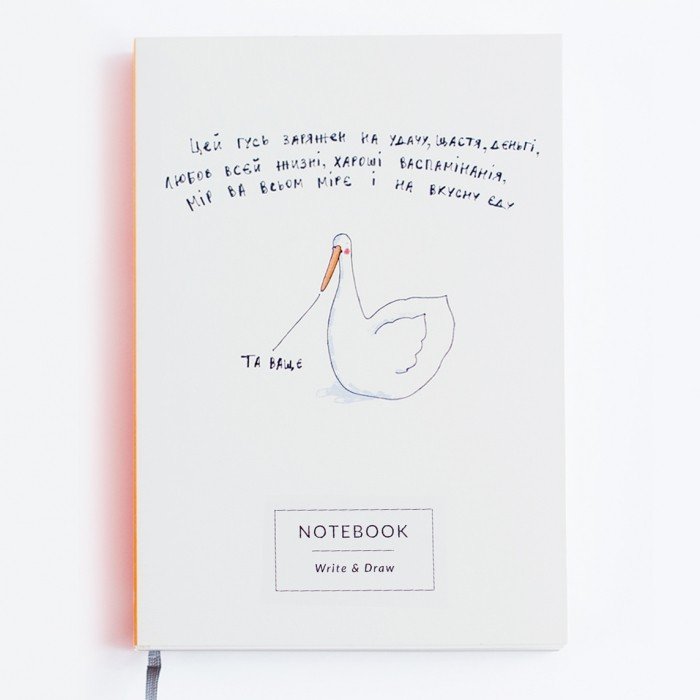 Цей гусь заряжен на удачу, щастя, дєньгі,
любов всєй жизні, хароші васпамінанія,
мір ва всьом мірє і на вкусну єду
Та ващє
NOTEBOOK
Write & Draw